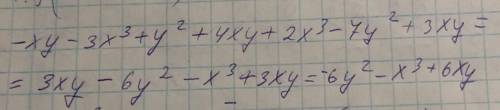 -xy-3x³+y²+4xy+2x³-7y²+3xy=
=3xy-6y²-x³+3xy=-6y²-x³+6xy